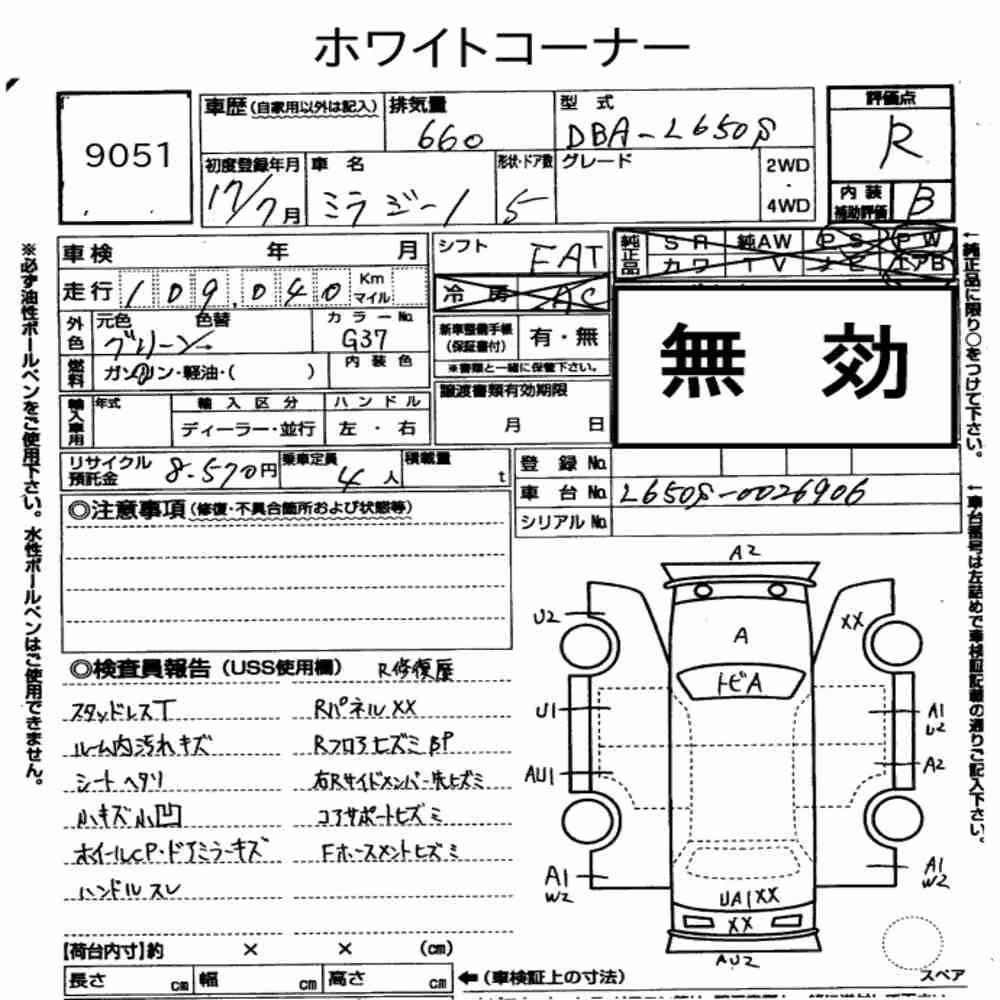 ホワイトコーナー
9051
車歴(自家用以外は記入)
排気量
660
型式
DBA-L650S
評価点
R
初度登録年月
17/7月
車名
ミラジーノ
形状・ドア数
5
グレード
2WD
・
4WD
内装
補助評価
B
車検 年 月
走行 109,040 Km
マイル
シフト
FAT
冷房 AC
純正品
SR 純AW PS PW
カワ TV ナビ エアB
外色
元色 色替
グリーン
カラーNo.
G37
燃料
ガソリン・軽油・( )
内装色
新車整備手帳
(保証書付)
有・無
※書類と一緒に保管下さい。
譲渡書類有効期限
月 日
無効
輸入車用
年式
輸入区分
ディーラー・並行
ハンドル
左・右
リサイクル
預託金
8.570円
乗車定員
4人
積載量
t
登録No.
車台No. L650S-0026906
シリアルNo.
◎注意事項(修復・不具合箇所および状態等)
◎検査員報告(USS使用欄) R修復歴
スタッドレスT
ルーム内汚れキズ
シートヘタリ
小キズ小凹
ホイールCP・ドアミラーキズ
ハンドルスレ
RパネルXX
RフロアヒズミBP
右Rサイドメンバー先ヒズミ
コアサポートヒズミ
Fホースメントヒズミ
A2
U2
XX
A
トビA
U1
A1
U2
AU1
A2
A1
W2
A1
W2
UA1XX
XX
AU2
スペア
【荷台内寸】約 × × (cm)
長さ cm 幅 cm 高さ cm
←(車検証上の寸法)
※必ず油性ボールペンをご使用下さい。水性ボールペンはご使用できません。
←純正品に限り○をつけて下さい。
←車台番号は左詰めで車検証記載の通りご記入下さい。